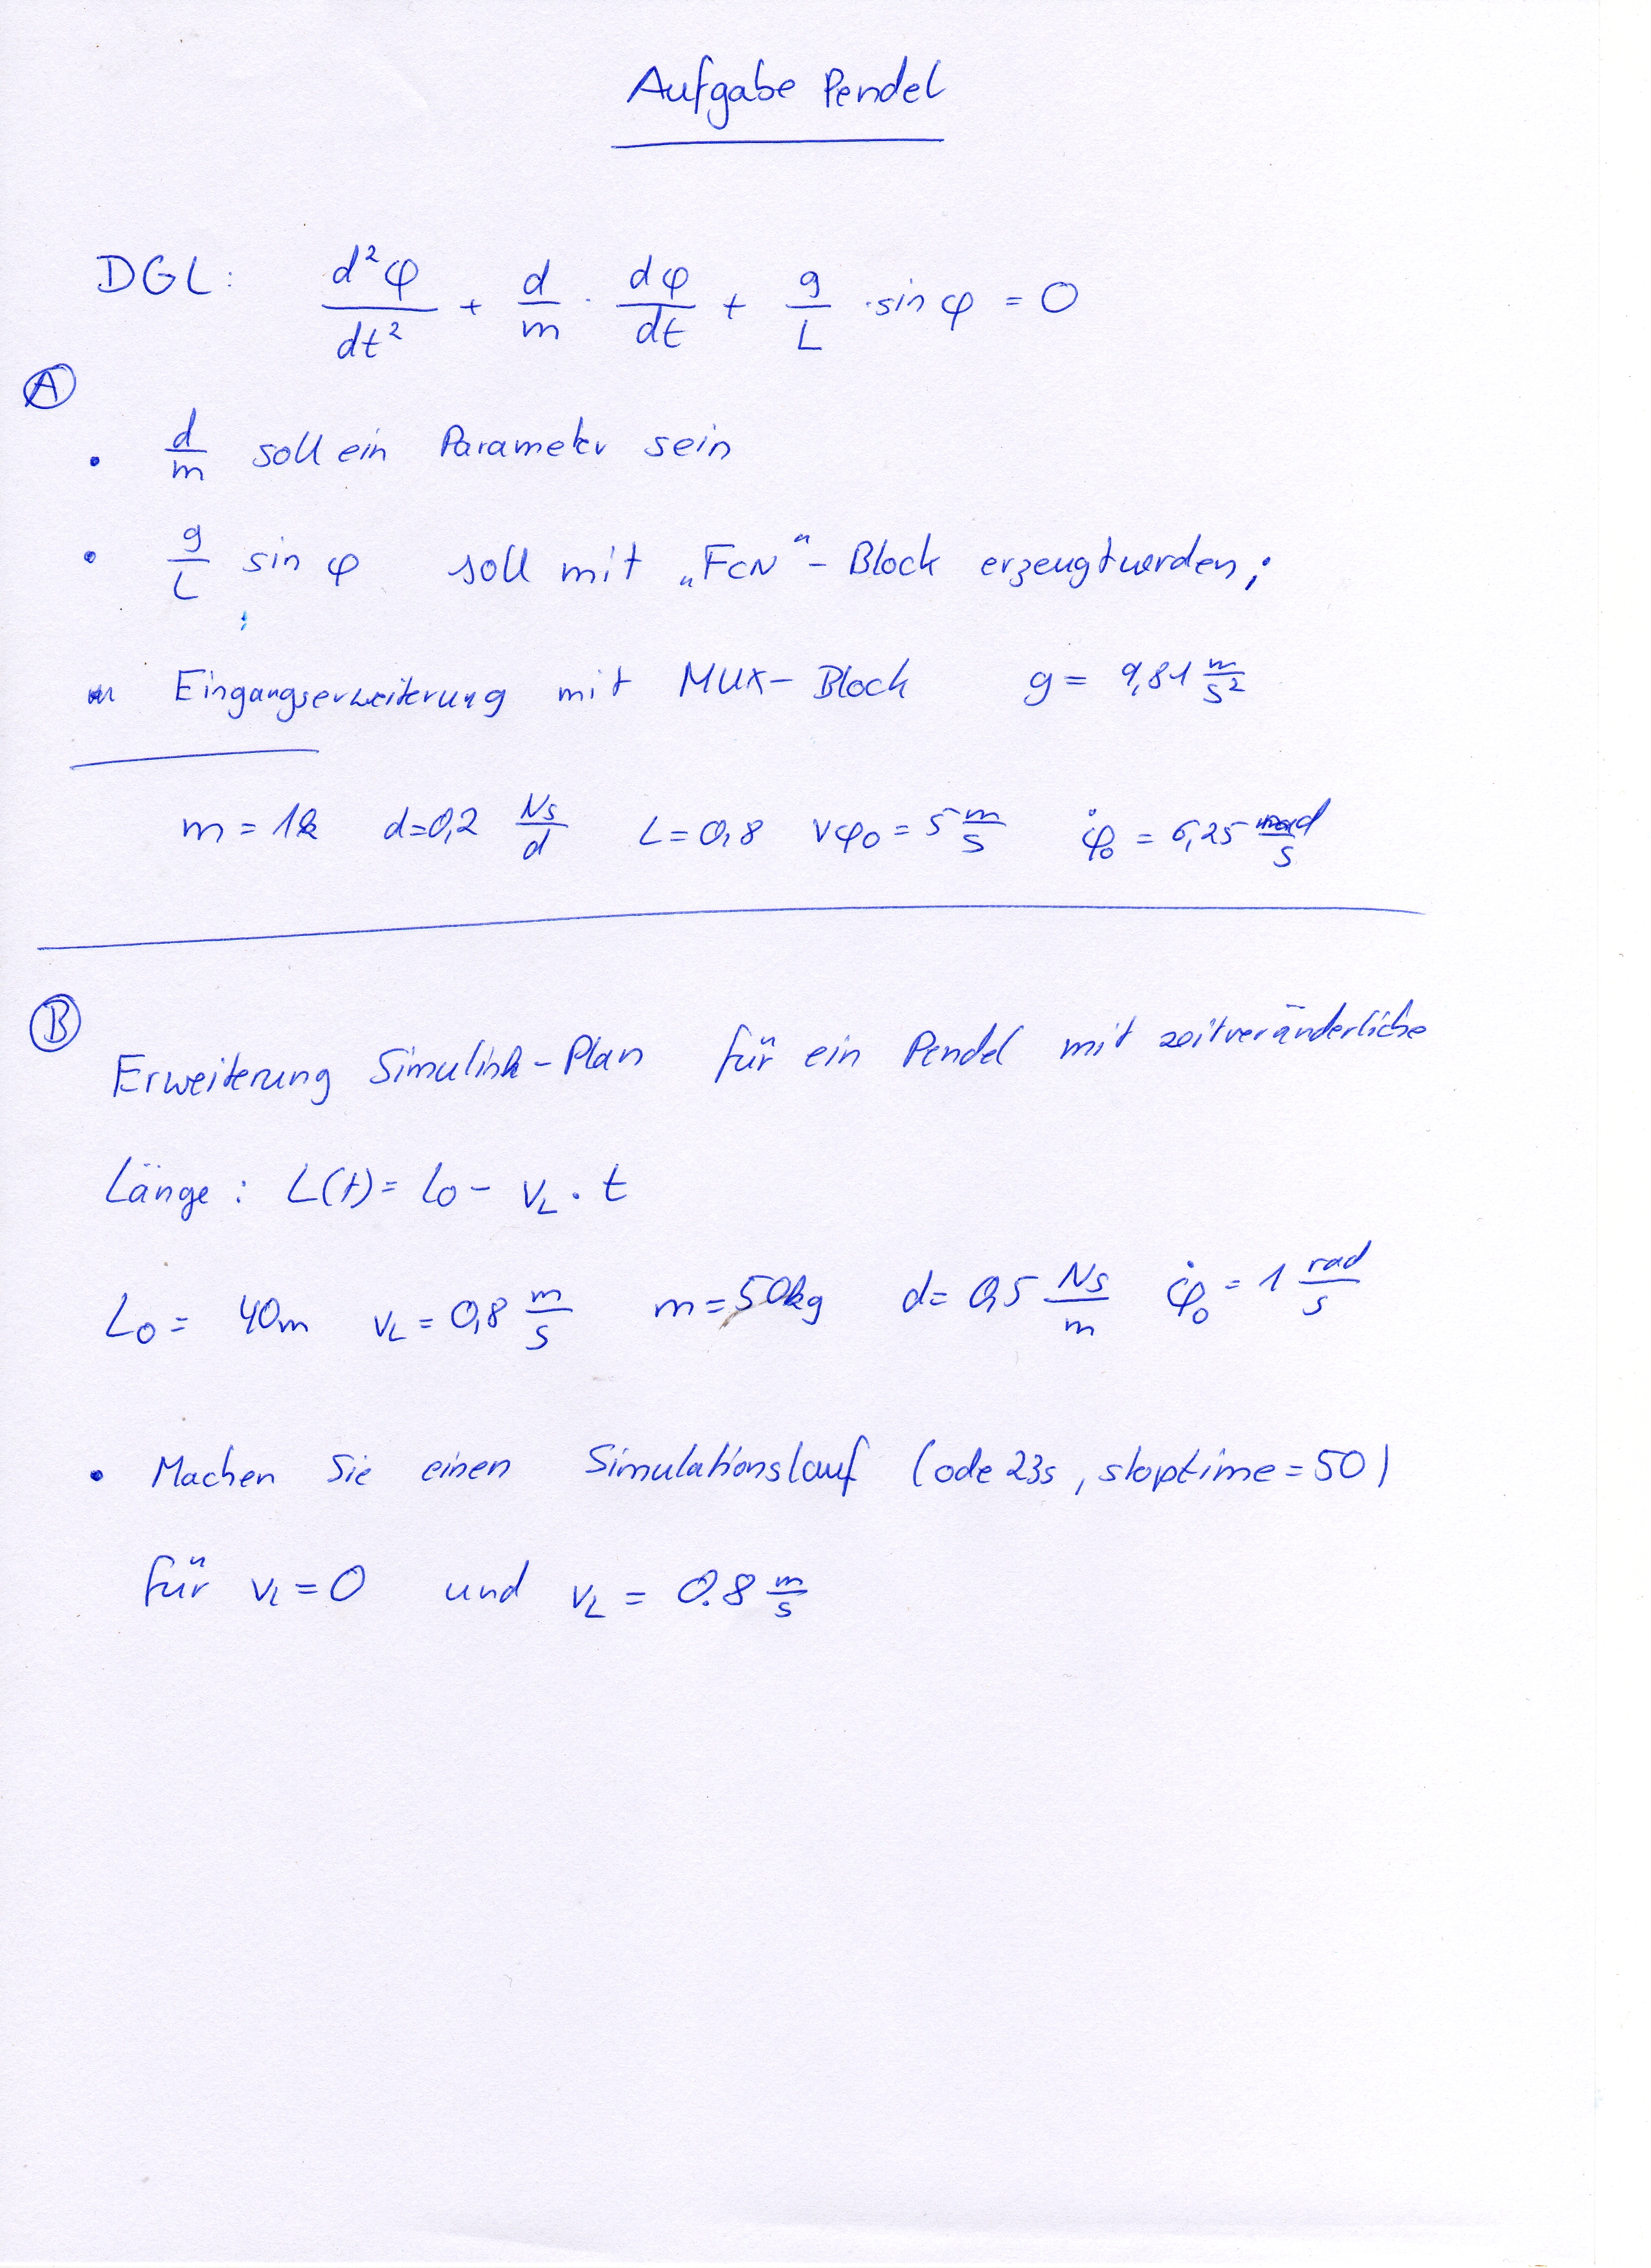 Aufgabe Pendel
DGL: d²φ/dt² + d/m · dφ/dt + g/L · sin φ = 0
Ⓐ
• d/m soll ein Parameter sein
• g/L sin φ soll mit „FCN“-Block erzeugt werden;
Eingangserweiterung mit MUX-Block g = 9,81 m/s²
m = 1k d=0,2 Ns/d L=0,8 vφ0 = 5 m/s φ̇0 = 6,25 rad/s
Ⓑ
Erweiterung Simulink-Plan für ein Pendel mit zeitveränderliche
Länge: L(t) = l0 - vL · t
L0 = 40m vL = 0,8 m/s m = 50kg d = 0,5 Ns/m φ̇0 = 1 rad/s
• Machen Sie einen Simulationslauf (ode 23s, stoptime = 50)
für vL = 0 und vL = 0.8 m/s